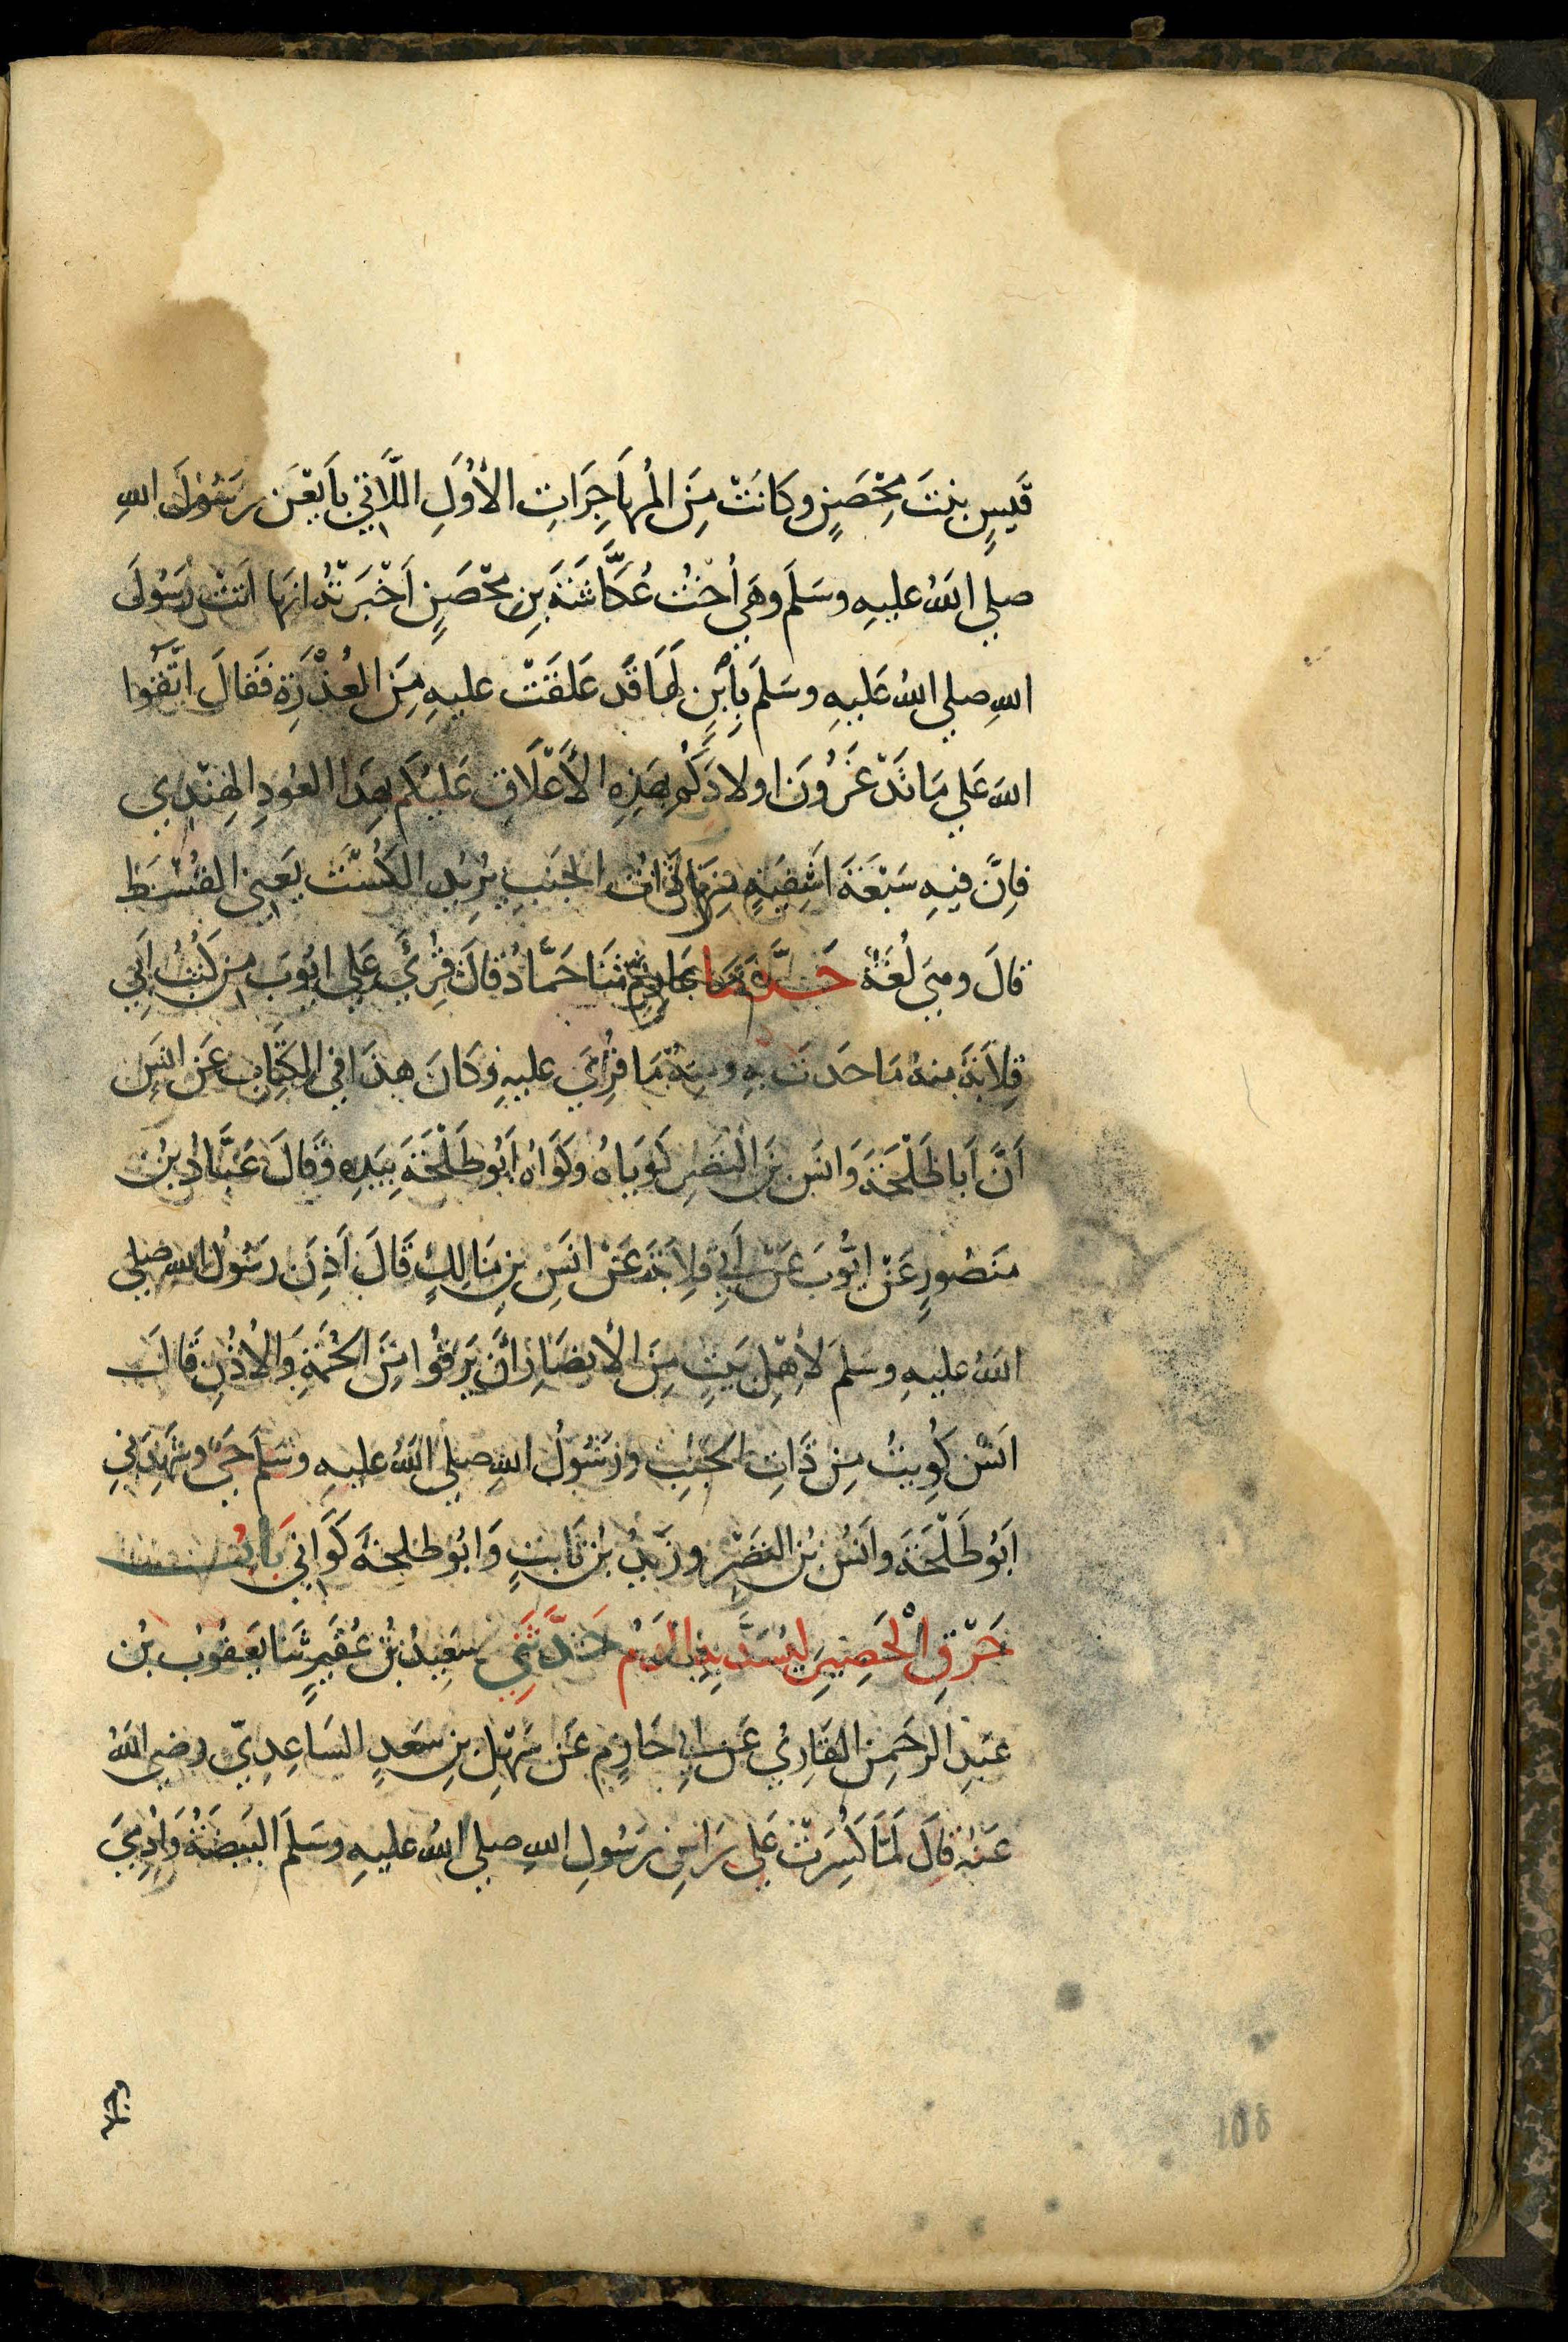 قَيسٍ بنتَ مِحْصَنٍ وكَانَتْ مِنَ المُهاَجِرَاتِ الأُوَلِ اللَّاتي بَايَعْنَ رَسُولَ اللهِ
صلي اللهُ عليهِ وسَلَم وهَي اُختُ عُكَّاشَةَ بنِ مِحْصَنٍ اَخْبَرَتْهُ انها اتت رَسُولَ
اللهِ صلي اللهُ عَليهِ وسَلَمَ بِاُبْنٍ لَهَا قَد عَلَقَتْ عليهِ مِنَ العُذْرَةِ فَقالَ اتَّقُوا
اللهَ عَلي مَا تَدْغَرُونَ اولادَكُمْ بِهَذِهِ الأَعْلَاقِ عَليكُم بِهَذا العُودِ الهِندِي
فاِنَّ فيهِ سَبْعَةَ اَشفِيَةٍ مِنها ذَاتُ الجَنبِ يُرِيدُ الكُسْتَ يَعني القُسْطَ
قالَ وهيَ لُغَةٌ حَدَّثَنَا عَارِمٌ ثنَا حَمَّادٌ قالَ قُرِئَ عَلي ايُوبَ مِن كُتُبِ اَبِي
قِلاَبَةَ منهُ مَا حَدثَ بِهِ ومِنهُ مَا قُرِئَ عليهِ وكَانَ هذَا في الكِتَابِ عَن انَسٍ
اَنَّ اَبا طَلْحَةَ وَانَس بنَ النضرِ كَوَيَاهُ وكَوَاهُ اَبُو طَلْحَةَ بيَدِهِ وقَالَ عَبَّادُ بنُ
مَنصُورٍ عَن ايُّوبَ عَن اَبِي قِلاَبَةَ عَن انَسِ بنِ مَالِكٍ قَالَ اَذِنَ رَسُولُ اللهِ صلي
اللهُ عليهِ وسَلمَ لأهلِ بَيتٍ مِنَ الأنصَارِ اَن يَرقُوا مِنَ الحُمَةِ وَالأُذُنِ قَالَ
اَنَسٌ كُوِيتُ مِن ذَاتِ الجَنبِ ورَسُولُ اللهِ صلي اللهُ عليهِ وسَلمَ حَيٌ وشَهِدَني
اَبُو طَلْحَةَ وانَسُ بنُ النضْرِ وزَيدُ بنُ ثَابتٍ وَابُو طلحةَ كَوَاني بَابُ
حَرْقِ الْحَصِيرِ ليُسَدَّ بهِ الدَمُ حَدَّثَنِي سَعِيدُ بنُ عُفَيرٍ ثنا يَعقُوبُ بنُ
عَبدِ الرحَمنِ القَارِيُّ عَن اَبي حَازِمٍ عَن سَهْلِ بنِ سَعدٍ السَاعِدِيّ رضيَ اللهُ
عَنهُ قالَ لَمّا كُسِرَتْ عَلي رَاسِ رَسُولِ اللهِ صلي اللهُ عليهِ وسَلمَ البَيضَةُ وَادْمِيَ
108